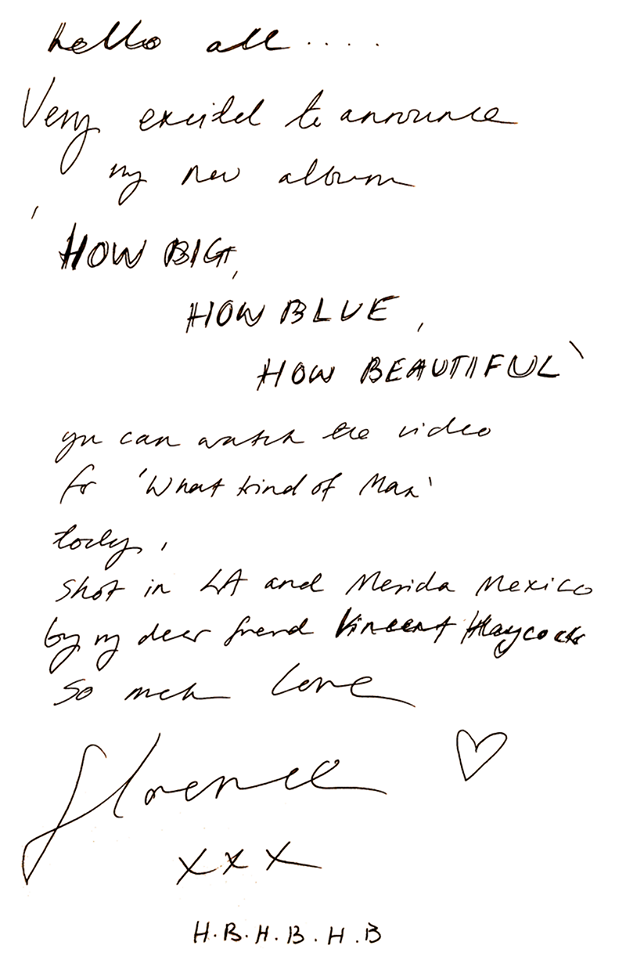 hello all....
Very excited to announce
my new album
'HOW BIG,
HOW BLUE,
HOW BEAUTIFUL'
you can watch the video
for 'What Kind of Man'
today,
Shot in LA and Merida Mexico
by my dear friend Vincent Haycock
So much love
Florence ♡
xxx
H.B.H.B.H.B